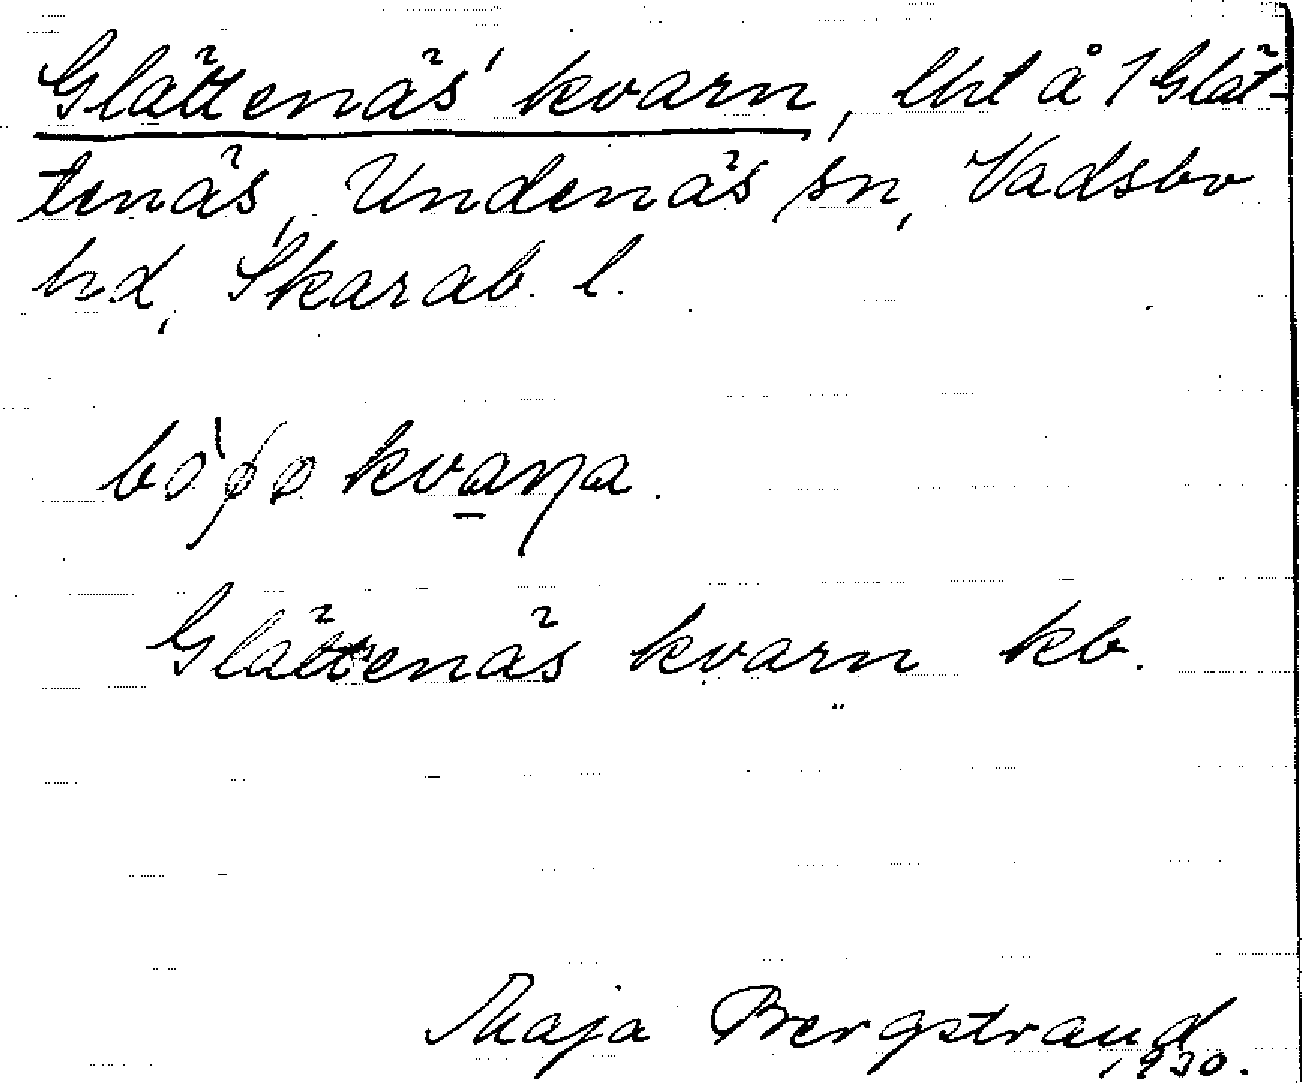 Glättenäs kvarn, lht å 1 Glät-
tenäs, Undenäs sn, Vadsbo
hd, Skarab. l.
kvaɳa.
Glättenäs kvarn kb.
Maja Bergstrand
1930.